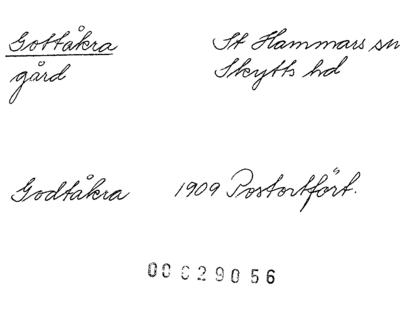 Gottåkra St Hammars sn
gård Skytts hd
Godtåkra 1909 Postortfört.
00029056